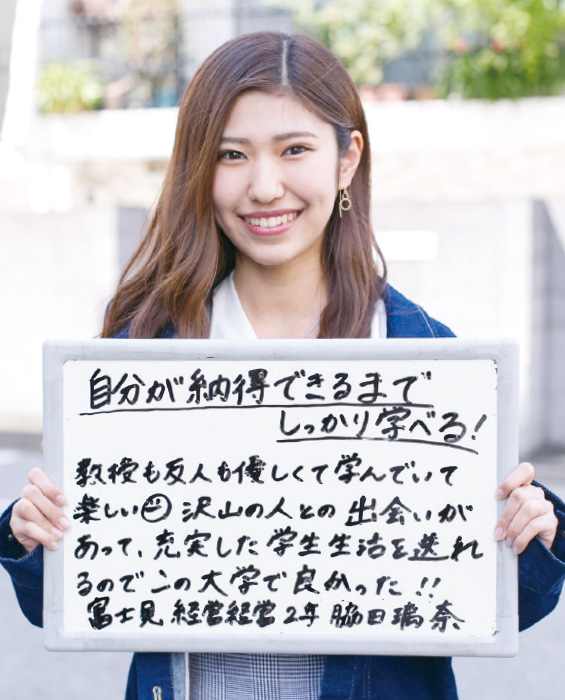 自分が納得できるまで
しっかり学べる!
教授も友人も優しくて学んでいて
楽しい 沢山の人との出会いが
あって、充実した学生生活を送れ
るのでこの大学で良かった!!
冨士見 経営経営2年 脇田瑞奈